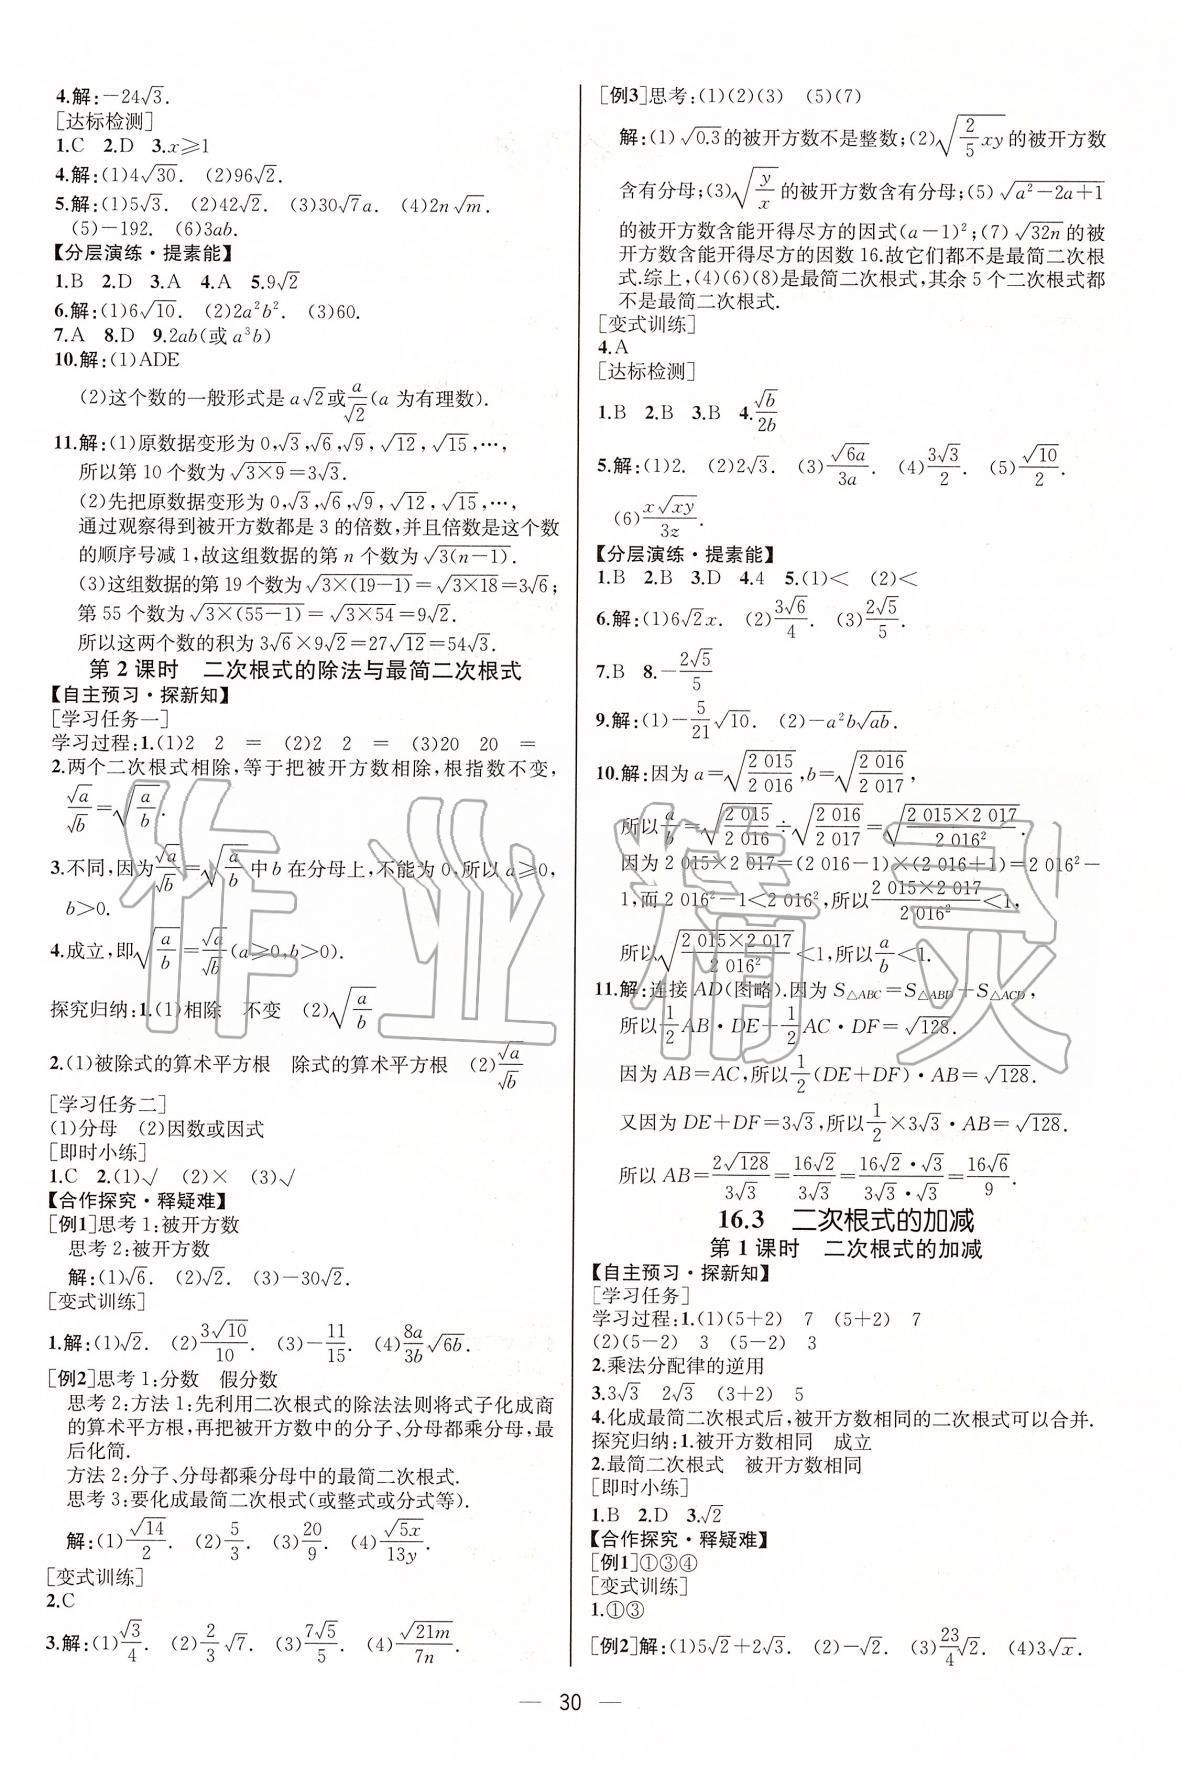 4.解:－24√3.
[达标检测]
1.C　2.D　3.x≥1
4.解:(1)4√30.　(2)96√2.
5.解:(1)5√3.　(2)42√2.　(3)30√7a.　(4)2n√m.
(5)－192.　(6)3ab.
【分层演练·提素能】
1.B　2.D　3.A　4.A　5.9√2
6.解:(1)6√10.　(2)2a²b².　(3)60.
7.A　8.D　9.2ab(或a³b)
10.解:(1)ADE
(2)这个数的一般形式是a√2或a/√2(a 为有理数).
11.解:(1)原数据变形为0,√3,√6,√9,√12,√15,…,
所以第10个数为√(3×9)=3√3.
(2)先把原数据变形为0,√3,√6,√9,√12,√15,…,
通过观察得到被开方数都是3的倍数,并且倍数是这个数
的顺序号减1,故这组数据的第n个数为√(3(n－1)).
(3)这组数据的第19个数为√(3×(19－1))=√(3×18)=3√6;
第55个数为√(3×(55－1))=√(3×54)=9√2.
所以这两个数的积为3√6×9√2=27√12=54√3.
第2课时　二次根式的除法与最简二次根式
【自主预习·探新知】
[学习任务一]
学习过程:1.(1)2　2　=　(2)2　2　=　(3)20　20　=
2.两个二次根式相除,等于把被开方数相除,根指数不变,
√a/√b=√(a/b).
3.不同,因为√a/√b=√(a/b)中b在分母上,不能为0,所以a≥0,
b>0.
4.成立,即√(a/b)=√a/√b(a≥0,b>0).
探究归纳:1.(1)相除　不变　(2)√(a/b)
2.(1)被除式的算术平方根　除式的算术平方根　(2)√a/√b
[学习任务二]
(1)分母　(2)因数或因式
[即时小练]
1.C　2.(1)√　(2)×　(3)√
【合作探究·释疑难】
[例1]思考1:被开方数
思考2:被开方数
解:(1)√6.　(2)√2.　(3)－30√2.
[变式训练]
1.解:(1)√2.　(2)3√10/10.　(3)－11/15.　(4)8a/3b√6b.
[例2]思考1:分数　假分数
思考2:方法1:先利用二次根式的除法法则将式子化成商
的算术平方根,再把被开方数中的分子、分母都乘分母,最
后化简.
方法2:分子、分母都乘分母中的最简二次根式.
思考3:要化成最简二次根式(或整式或分式等).
解:(1)√14/2.　(2)5/3.　(3)20/9.　(4)√5x/13y.
[变式训练]
2.C
3.解:(1)√3/4.　(2)2/3√7.　(3)7√5/5.　(4)√21m/7n.
[例3]思考:(1)(2)(3)　(5)(7)
解:(1)√0.3的被开方数不是整数;(2)√(2/5xy)的被开方数
含有分母;(3)√(y/x)的被开方数含有分母;(5)√(a²－2a+1)
的被开方数含能开得尽方的因式(a－1)²;(7)√32n的被
开方数含能开得尽方的因数16.故它们都不是最简二次根
式.综上,(4)(6)(8)是最简二次根式,其余5个二次根式都
不是最简二次根式.
[变式训练]
4.A
[达标检测]
1.B　2.B　3.B　4.√b/2b
5.解:(1)2.　(2)2√3.　(3)√6a/3a.　(4)3√3/2.　(5)√10/2.
(6)x√xy/3z.
【分层演练·提素能】
1.B　2.B　3.D　4.4　5.(1)<　(2)<
6.解:(1)6√2x.　(2)3√6/4.　(3)2√5/5.
7.B　8.－2√5/5
9.解:(1)－5/21√10.　(2)－a²b√ab.
10.解:因为a=√(2 015/2 016),b=√(2 016/2 017),
所以a/b=√(2 015/2 016)÷√(2 016/2 017)=√(2 015×2 017/2 016²).
因为2 015×2 017=(2 016－1)×(2 016+1)=2 016²－
1,而2 016²－1<2 016²,所以2 015×2 017/2 016²<1,
所以√(2 015×2 017/2 016²)<1,所以a/b<1.
11.解:连接AD(图略).因为S△ABC=S△ABD+S△ACD,
所以1/2AB·DE+1/2AC·DF=√128.
因为AB=AC,所以1/2(DE+DF)·AB=√128.
又因为DE+DF=3√3,所以1/2×3√3·AB=√128.
所以AB=2√128/3√3=16√2/3√3=16√2·√3/3√3·√3=16√6/9.
16.3　二次根式的加减
第1课时　二次根式的加减
【自主预习·探新知】
[学习任务]
学习过程:1.(1)(5+2)　7　(5+2)　7
(2)(5－2)　3　(5－2)　3
2.乘法分配律的逆用
3.3√3　2√3　(3+2)　5
4.化成最简二次根式后,被开方数相同的二次根式可以合并.
探究归纳:1.被开方数相同　成立
2.最简二次根式　被开方数相同
[即时小练]
1.B　2.D　3.√2
【合作探究·释疑难】
[例1]①③④
[变式训练]
1.①③
[例2]解:(1)5√2+2√3.　(2)－√2.　(3)23/4√2.　(4)3√x.
— 30 —
作业精灵